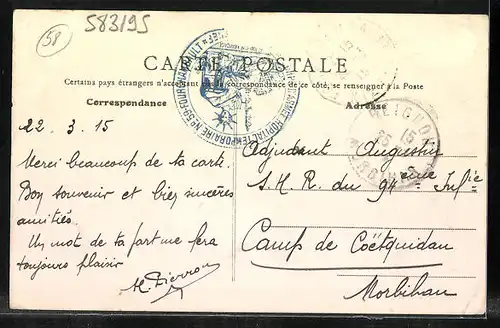 58
583195
CARTE POSTALE
Certains pays étrangers n'acceptant de correspondance de ce côté, se renseigner à la Poste
Correspondance
Adresse
22 . 3 . 15
Merci beaucoup de ta carte.
Bon souvenir et bien sincères
amitiés
Un mot de ta part me fera
toujours plaisir
Adjudant Augustin
S.H.R. du 94ème Infie
Camp de Coëtquidan
Morbihan
HOPITAL TEMPORAIRE N° 59